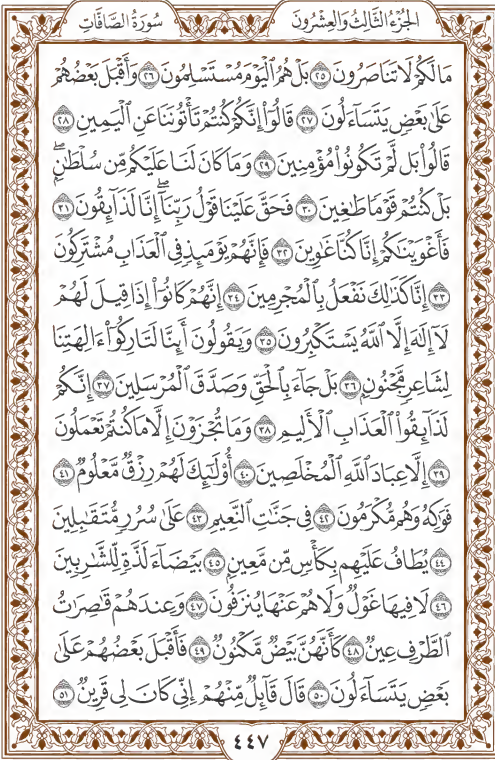 سُورَةُ الصَّافَّاتِ الجُزْءُ الثَّالِثُ وَالعِشْرُونَ
مَا لَكُمْ لَا تَنَاصَرُونَ ٢٥ بَلْ هُمُ ٱلْيَوْمَ مُسْتَسْلِمُونَ ٢٦ وَأَقْبَلَ بَعْضُهُمْ
عَلَىٰ بَعْضٍ يَتَسَآءَلُونَ ٢٧ قَالُوٓا۟ إِنَّكُمْ كُنتُمْ تَأْتُونَنَا عَنِ ٱلْيَمِينِ ٢٨
قَالُوا۟ بَل لَّمْ تَكُونُوا۟ مُؤْمِنِينَ ٢٩ وَمَا كَانَ لَنَا عَلَيْكُم مِّن سُلْطَٰنٍۭ ۖ
بَلْ كُنتُمْ قَوْمًا طَٰغِينَ ٣٠ فَحَقَّ عَلَيْنَا قَوْلُ رَبِّنَآ ۖ إِنَّا لَذَآئِقُونَ ٣١
فَأَغْوَيْنَٰكُمْ إِنَّا كُنَّا غَٰوِينَ ٣٢ فَإِنَّهُمْ يَوْمَئِذٍ فِى ٱلْعَذَابِ مُشْتَرِكُونَ
٣٣ إِنَّا كَذَٰلِكَ نَفْعَلُ بِٱلْمُجْرِمِينَ ٣٤ إِنَّهُمْ كَانُوٓا۟ إِذَا قِيلَ لَهُمْ
لَآ إِلَٰهَ إِلَّا ٱللَّهُ يَسْتَكْبِرُونَ ٣٥ وَيَقُولُونَ أَئِنَّا لَتَارِكُوٓا۟ ءَالِهَتِنَا
لِشَاعِرٍ مَّجْنُونٍۭ ٣٦ بَلْ جَآءَ بِٱلْحَقِّ وَصَدَّقَ ٱلْمُرْسَلِينَ ٣٧ إِنَّكُمْ
لَذَآئِقُوا۟ ٱلْعَذَابِ ٱلْأَلِيمِ ٣٨ وَمَا تُجْزَوْنَ إِلَّا مَا كُنتُمْ تَعْمَلُونَ
٣٩ إِلَّا عِبَادَ ٱللَّهِ ٱلْمُخْلَصِينَ ٤٠ أُو۟لَٰٓئِكَ لَهُمْ رِزْقٌ مَّعْلُومٌ ٤١
فَوَٰكِهُ وَهُم مُّكْرَمُونَ ٤٢ فِى جَنَّٰتِ ٱلنَّعِيمِ ٤٣ عَلَىٰ سُرُرٍ مُّتَقَٰبِلِينَ
٤٤ يُطَافُ عَلَيْهِم بِكَأْسٍ مِّن مَّعِينٍۭ ٤٥ بَيْضَآءَ لَذَّةٍ لِّلشَّٰرِبِينَ
٤٦ لَا فِيهَا غَوْلٌ وَلَا هُمْ عَنْهَا يُنزَفُونَ ٤٧ وَعِندَهُمْ قَٰصِرَٰتُ
ٱلطَّرْفِ عِينٌ ٤٨ كَأَنَّهُنَّ بَيْضٌ مَّكْنُونٌ ٤٩ فَأَقْبَلَ بَعْضُهُمْ عَلَىٰ
بَعْضٍ يَتَسَآءَلُونَ ٥٠ قَالَ قَآئِلٌ مِّنْهُمْ إِنِّى كَانَ لِى قَرِينٌ ٥١
٤٤٧